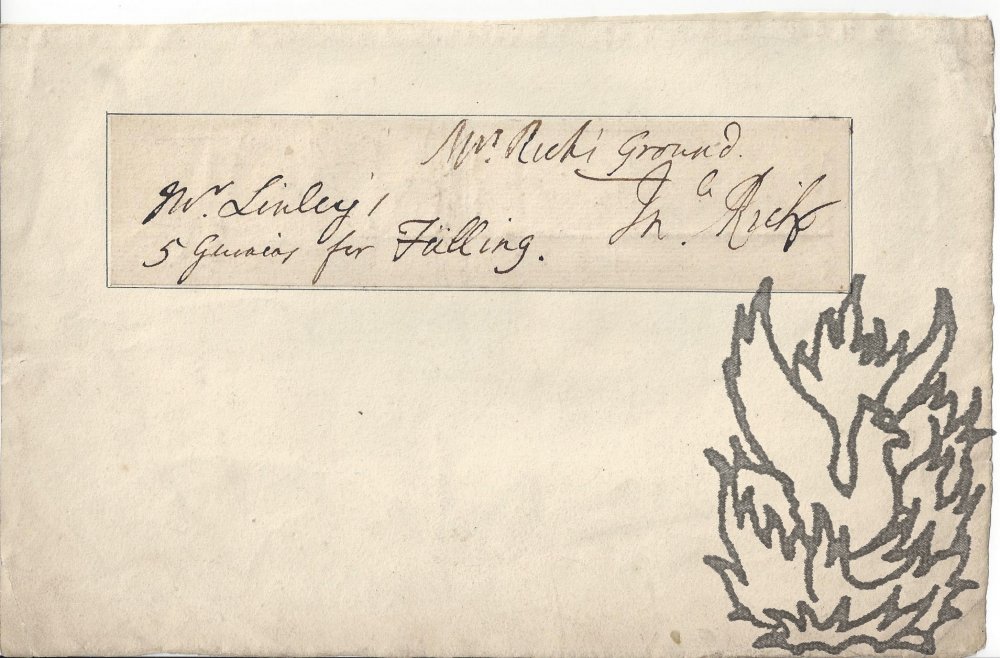 Mrs. Rich's Ground.
Mr. Linley's
Jna. Rich
5 Guineas for Filling.